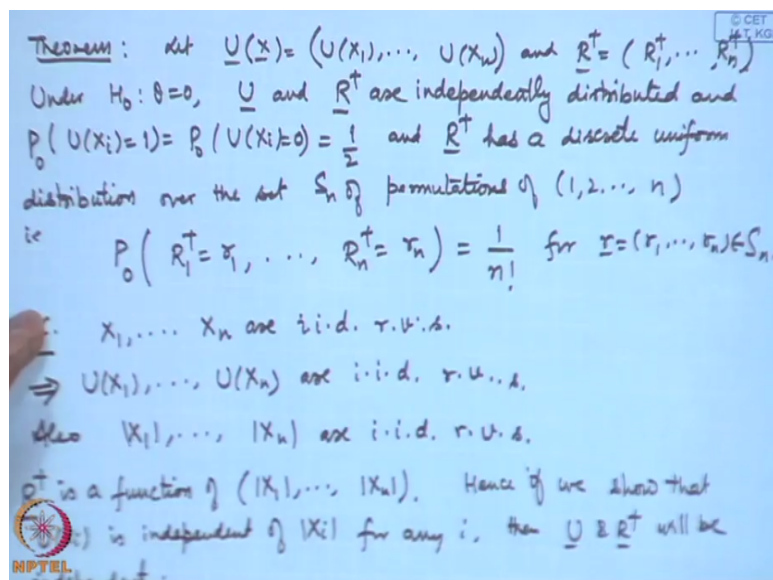 © CET
I.I.T, KGP
Theorem: Let U(x) = (U(X₁), ..., U(Xₙ) and R⁺ = (R₁⁺, ..., Rₙ⁺)
Under H₀: θ=0, U and R⁺ are independently distributed and
P₀(U(Xᵢ)=1) = P₀(U(Xᵢ)=0) = 1/2 and R⁺ has a discrete uniform
distribution over the set Sₙ of permutations of (1,2..., n)
ie
P₀(R₁⁺=r₁, ..., Rₙ⁺=rₙ) = 1/n! for r=(r₁,..., rₙ)∈Sₙ
X₁,.... Xₙ are i.i.d. r.v.s.
⇒ U(X₁),..., U(Xₙ) are i.i.d. r.v.s.
Also |X₁|,..., |Xₙ| are i.i.d. r.v.s.
R⁺ is a function of (|X₁|,..., |Xₙ|). Hence if we show that
is independent of |Xᵢ| for any i, then U & R⁺ will be
NPTEL